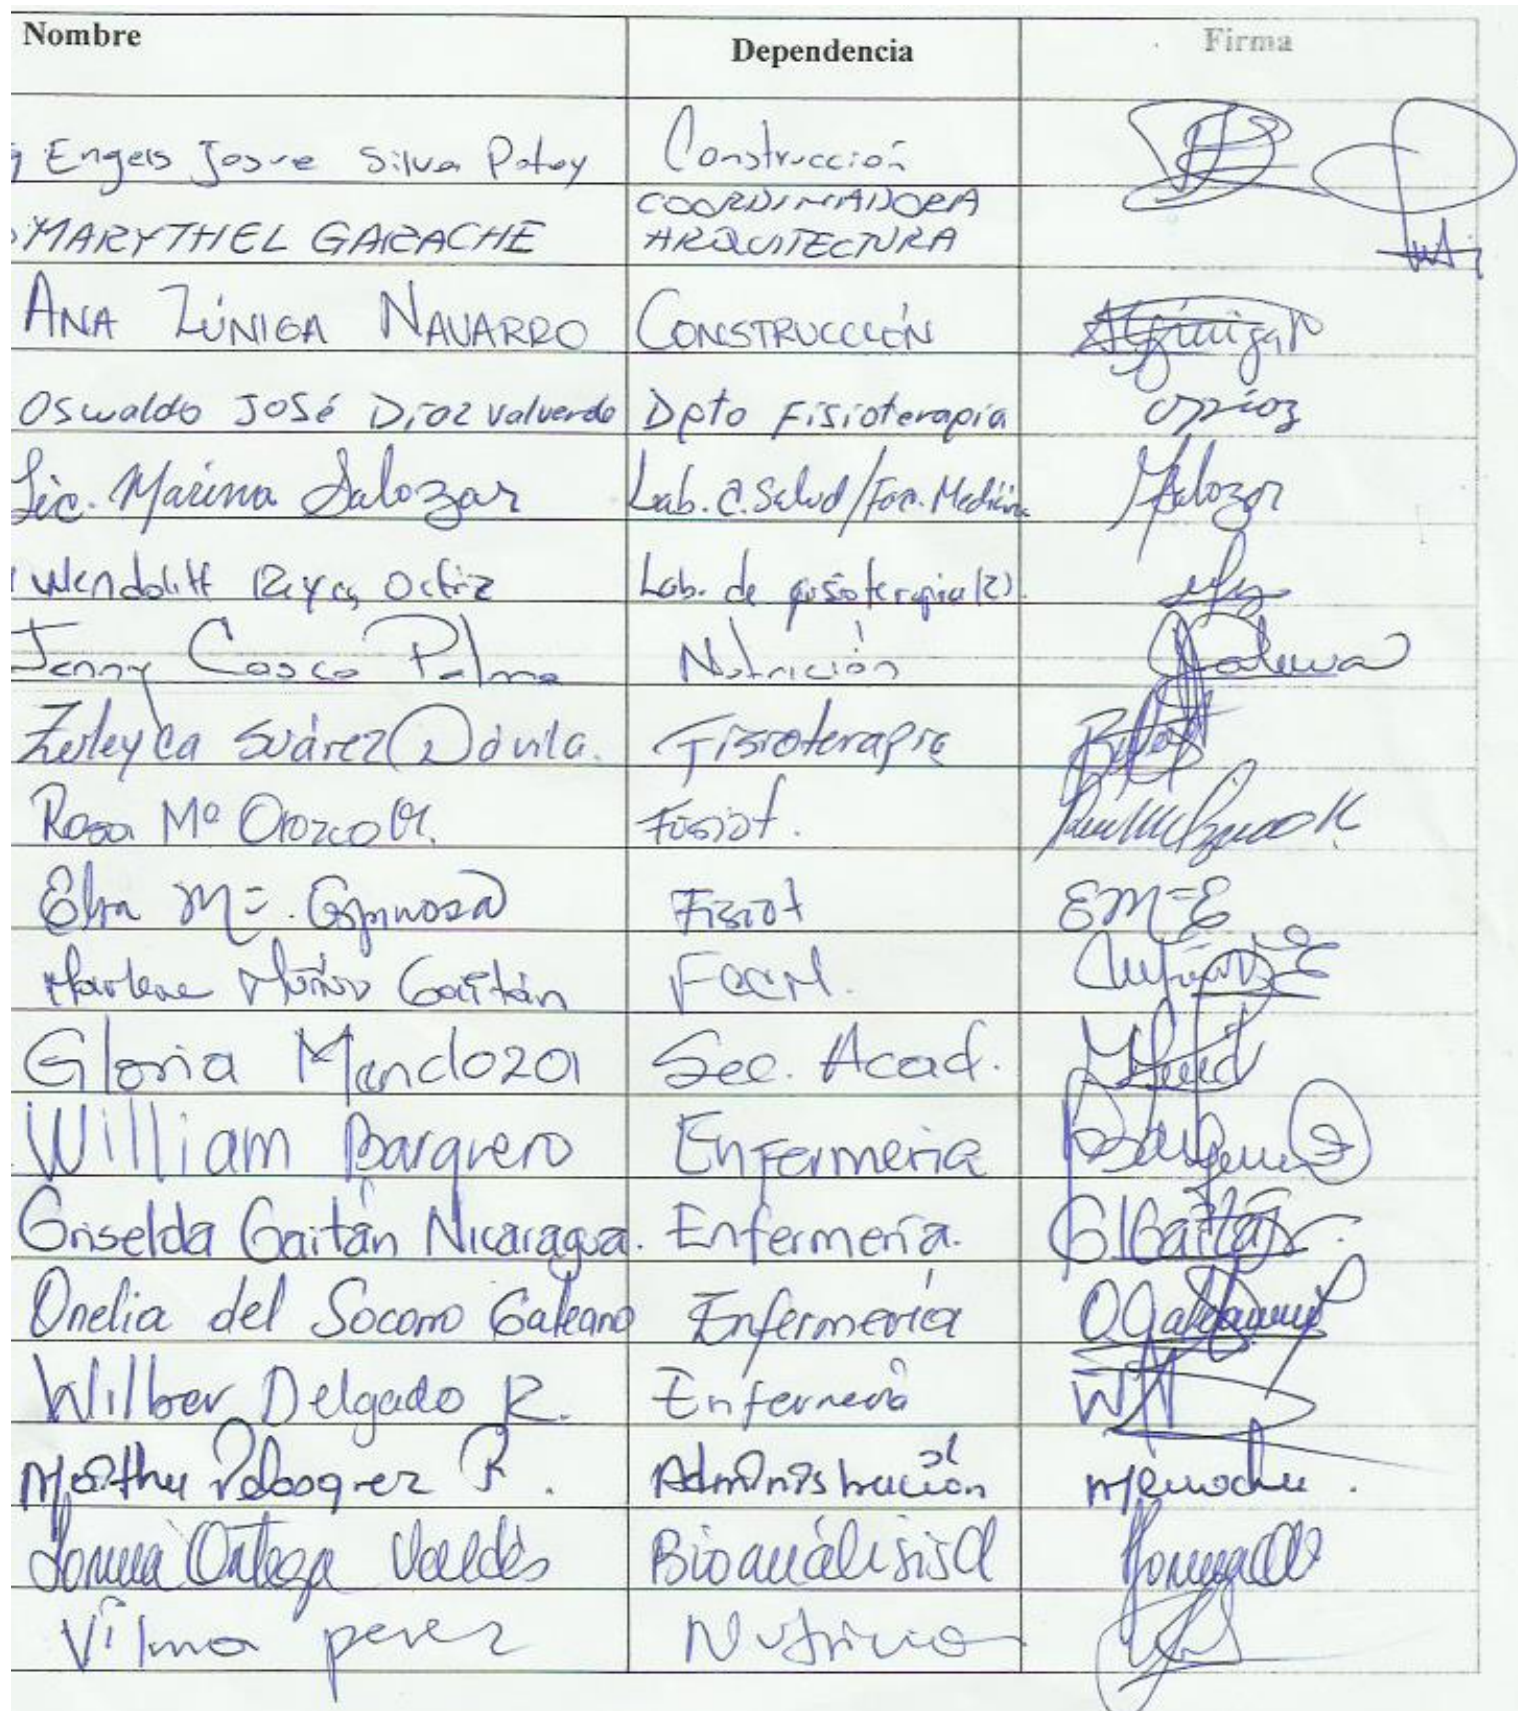 Nombre Dependencia Firma
Engels Josue Silva Potoy Construcción
MARYTHEL GARACHE COORDINADORA
ARQUITECTURA
ANA ZÚNIGA NAVARRO CONSTRUCCIÓN
Oswaldo José Díaz Valverde Dpto Fisioterapia ODíaz
Lic. Marina Salazar Lab. C. Salud/Fac. Medicina MSalazar
Wendolitt Reyes Ortiz Lab. de fisioterapia (2).
Jenny Casco Palma Nutrición
Zuleyca Suárez Dávila. Fisioterapia
Rosa Mª Orozco Fisiot.
Elba Mª. Espinosa Fisiot EMªE
Marlene Muñoz Gaitán FCCM.
Gloria Mendoza Sec. Acad.
William Barquero Enfermeria
Griselda Gaitán Nicaragua. Enfermería. GGaitán
Onelia del Socorro Galeano Enfermería
Wilber Delgado R. Enfermería
Martha Velasquez R. Administración
Ortega Valdés Bioanálisis
Vilma perez Nutricion